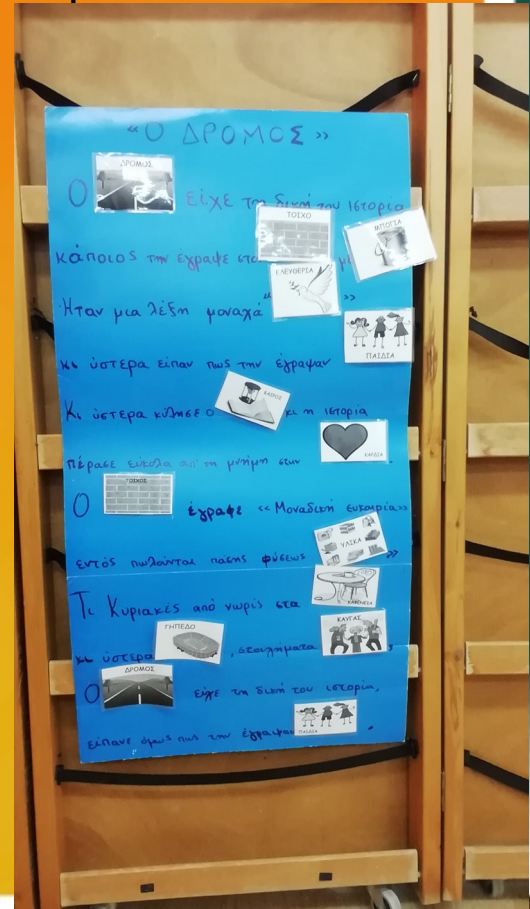 «Ο ΔΡΟΜΟΣ»
Ο ΔΡΟΜΟΣ είχε τη δική του ιστορία
κάποιος την έγραψε στο ΤΟΙΧΟ με ΜΠΟΓΙΑ
Ήταν μια λέξη μοναχά "ΕΛΕΥΘΕΡΙΑ"
κι ύστερα είπαν πως την έγραψαν ΠΑΙΔΙΑ
Κι ύστερα κύλησε ο ΚΑΙΡΟΣ κι η ιστορία
πέρασε εύκολα απ' τη μνήμη στην ΚΑΡΔΙΑ.
Ο ΤΟΙΧΟΣ έγραφε «Μοναδική ευκαιρία»
εντός πωλούνται πάσης φύσεως ΥΛΙΚΑ»
Τι Κυριακές από νωρίς στα ΚΑΦΕΝΕΙΑ
κι ύστερα ΓΗΠΕΔΟ, στοιχήματα ΚΑΥΓΑΣ,
Ο ΔΡΟΜΟΣ είχε τη δική του ιστορία,
είπανε όμως πως την έγραψαν ΠΑΙΔΙΑ.